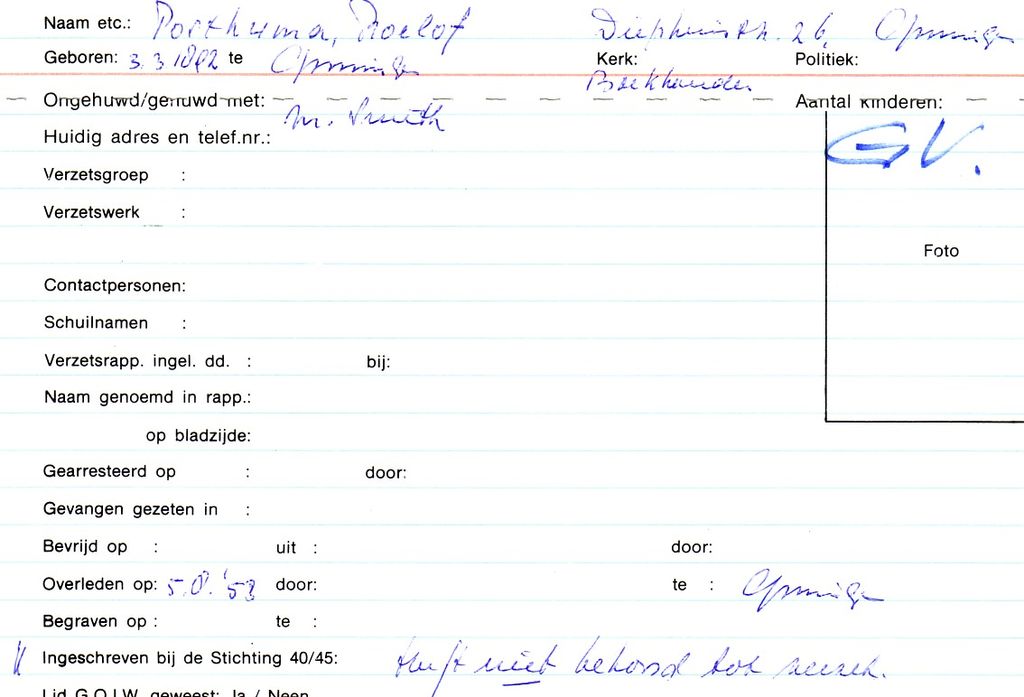 Naam etc.: Posthuma, Roelof Diephuisstr. 26, Groningen
Geboren: 3.3.1892 te Groningen Kerk: Politiek:
Boekhouder
Ongehuwd/gehuwd met: Aantal kinderen:
m. Smith
Huidig adres en telef.nr.: GV.
Verzetsgroep :
Verzetswerk :
Foto
Contactpersonen:
Schuilnamen :
Verzetsrapp. ingel. dd. : bij:
Naam genoemd in rapp.:
op bladzijde:
Gearresteerd op : door:
Gevangen gezeten in :
Bevrijd op : uit : door:
Overleden op: door: te : Groningen
Begraven op : te :
Ingeschreven bij de Stichting 40/45: Heeft niet behoord tot verzet.
Lid G.O.I.W. geweest: Ja / Neen